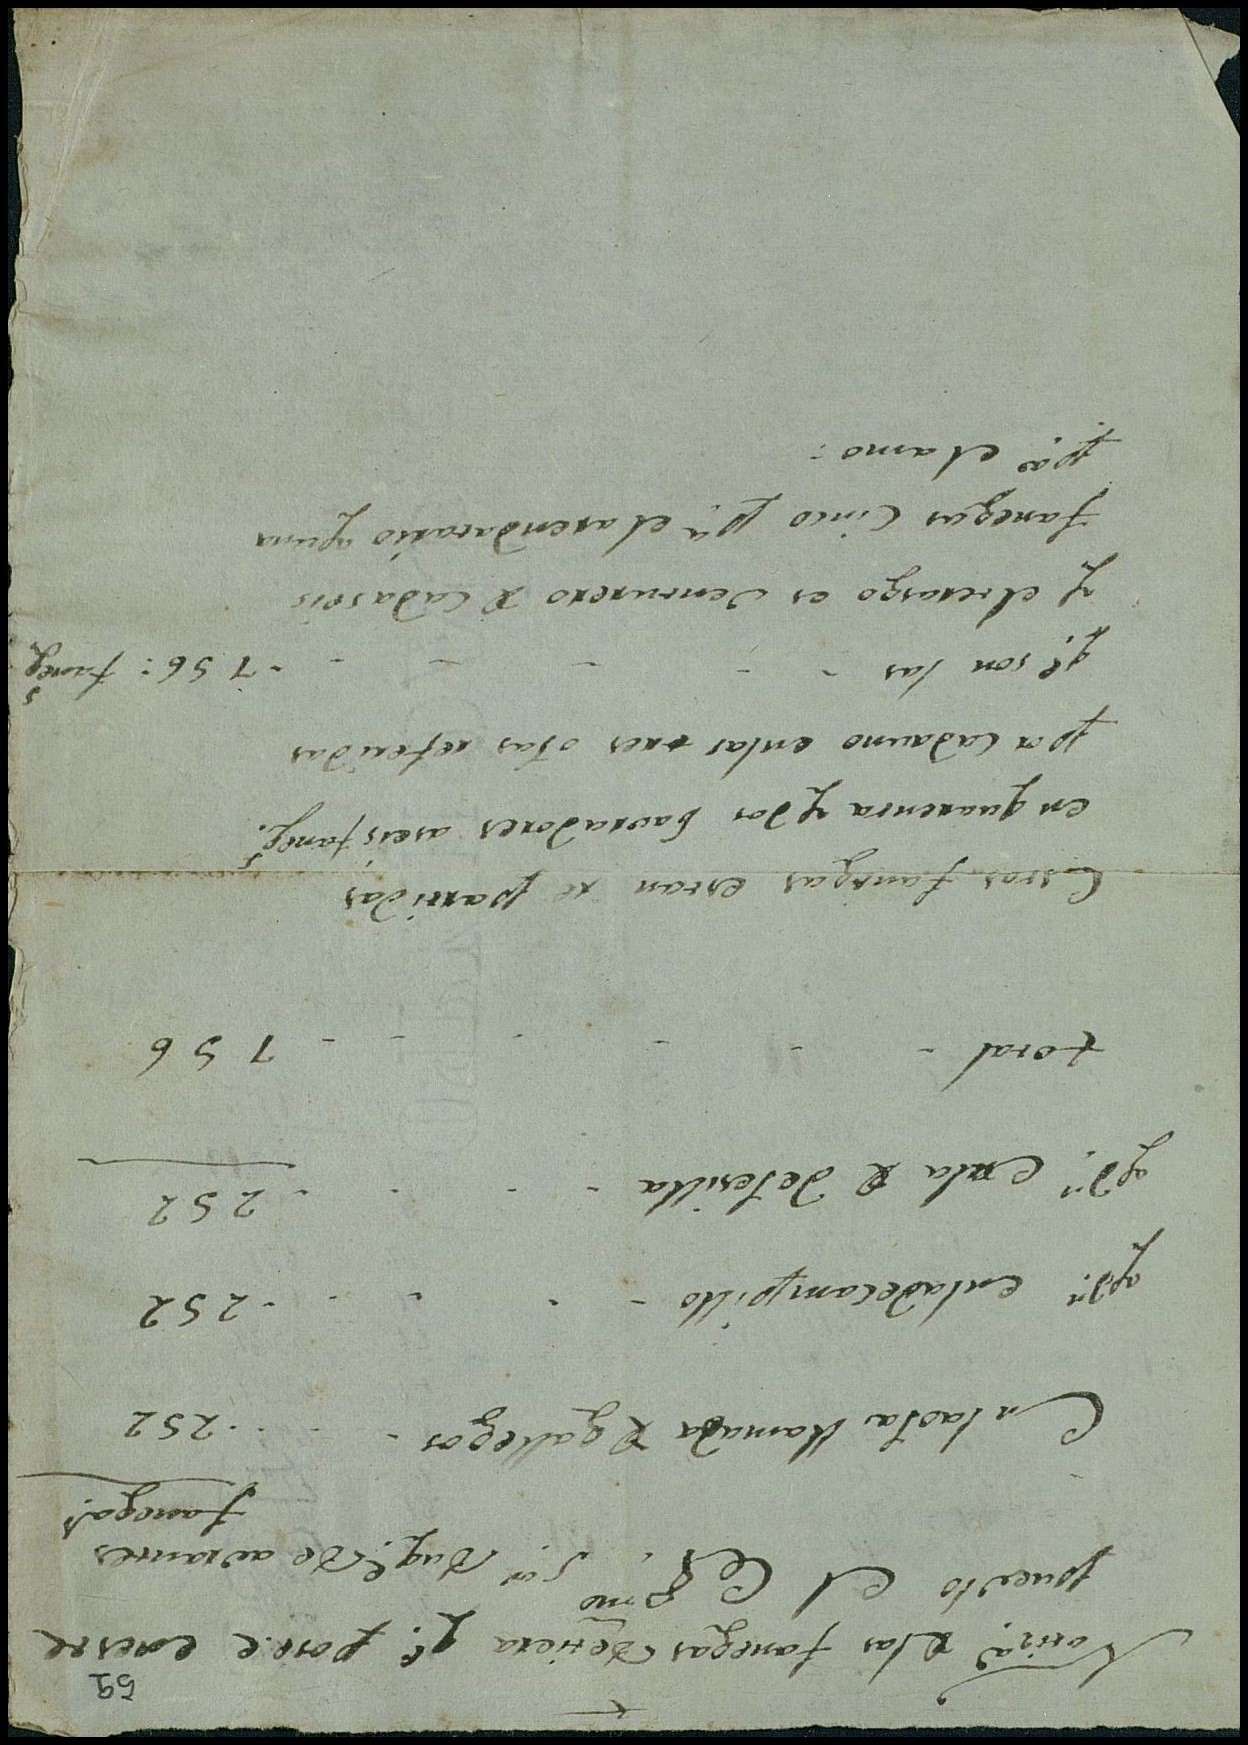 59
Notiza de las fanegas de tierra q.e posehe en este
pueblo el Ex.mo S.or Duq.e de abrantes
fanegas
En la oja llamada de gallegos - - - 252
yd.n en la de Campillo - - - - - 252
yd.n en la de dehesilla - - - - - 252
total - - - - - - - 756
Estas fanegas estan re partidas
en quarenta y dos Labradores a seis faneg.s
por cada uno en las tres ojas referidas
q.e son las - - - - - - - 756: faneg.s
y el terasgo es de cada seis
fanegas Cinco p.a el arendatario y una
p.a el amo: